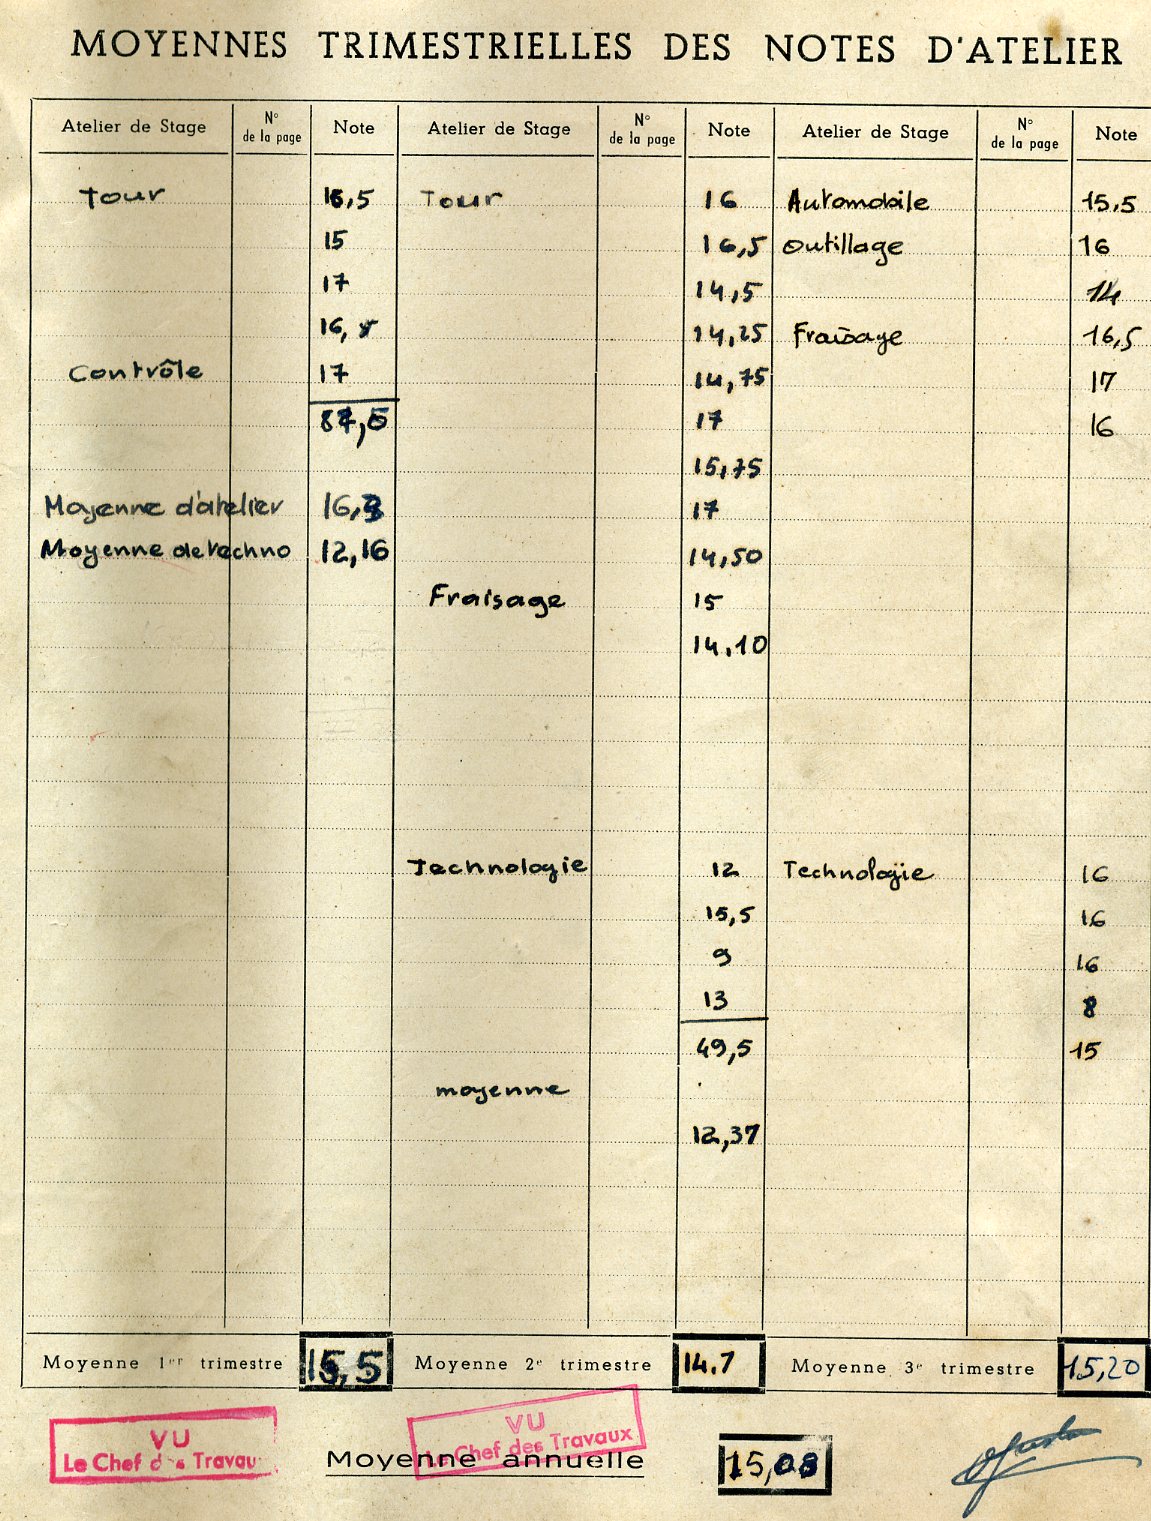 MOYENNES TRIMESTRIELLES DES NOTES D'ATELIER
Atelier de Stage N° de la page Note Atelier de Stage N° de la page Note Atelier de Stage N° de la page Note
Tour 16,5 Tour 16 Automobile 15,5
15 16,5 Outillage 16
17 14,5 14
16, 14,25 Fraisage 16,5
Contrôle 17 14,75 17
17 16
15,75
Moyenne d'atelier 17
Moyenne de techno 12,16 14,50
Fraisage 15
14,10
Technologie 12 Technologie 16
15,5 16
9 16
13 8
49,5 15
moyenne
12,37
Moyenne 1er trimestre 15,5 Moyenne 2e trimestre 14.7 Moyenne 3e trimestre 15,20
VU
Le Chef des Travau
VU
Le Chef des Travaux
Moyenne annuelle 15,08